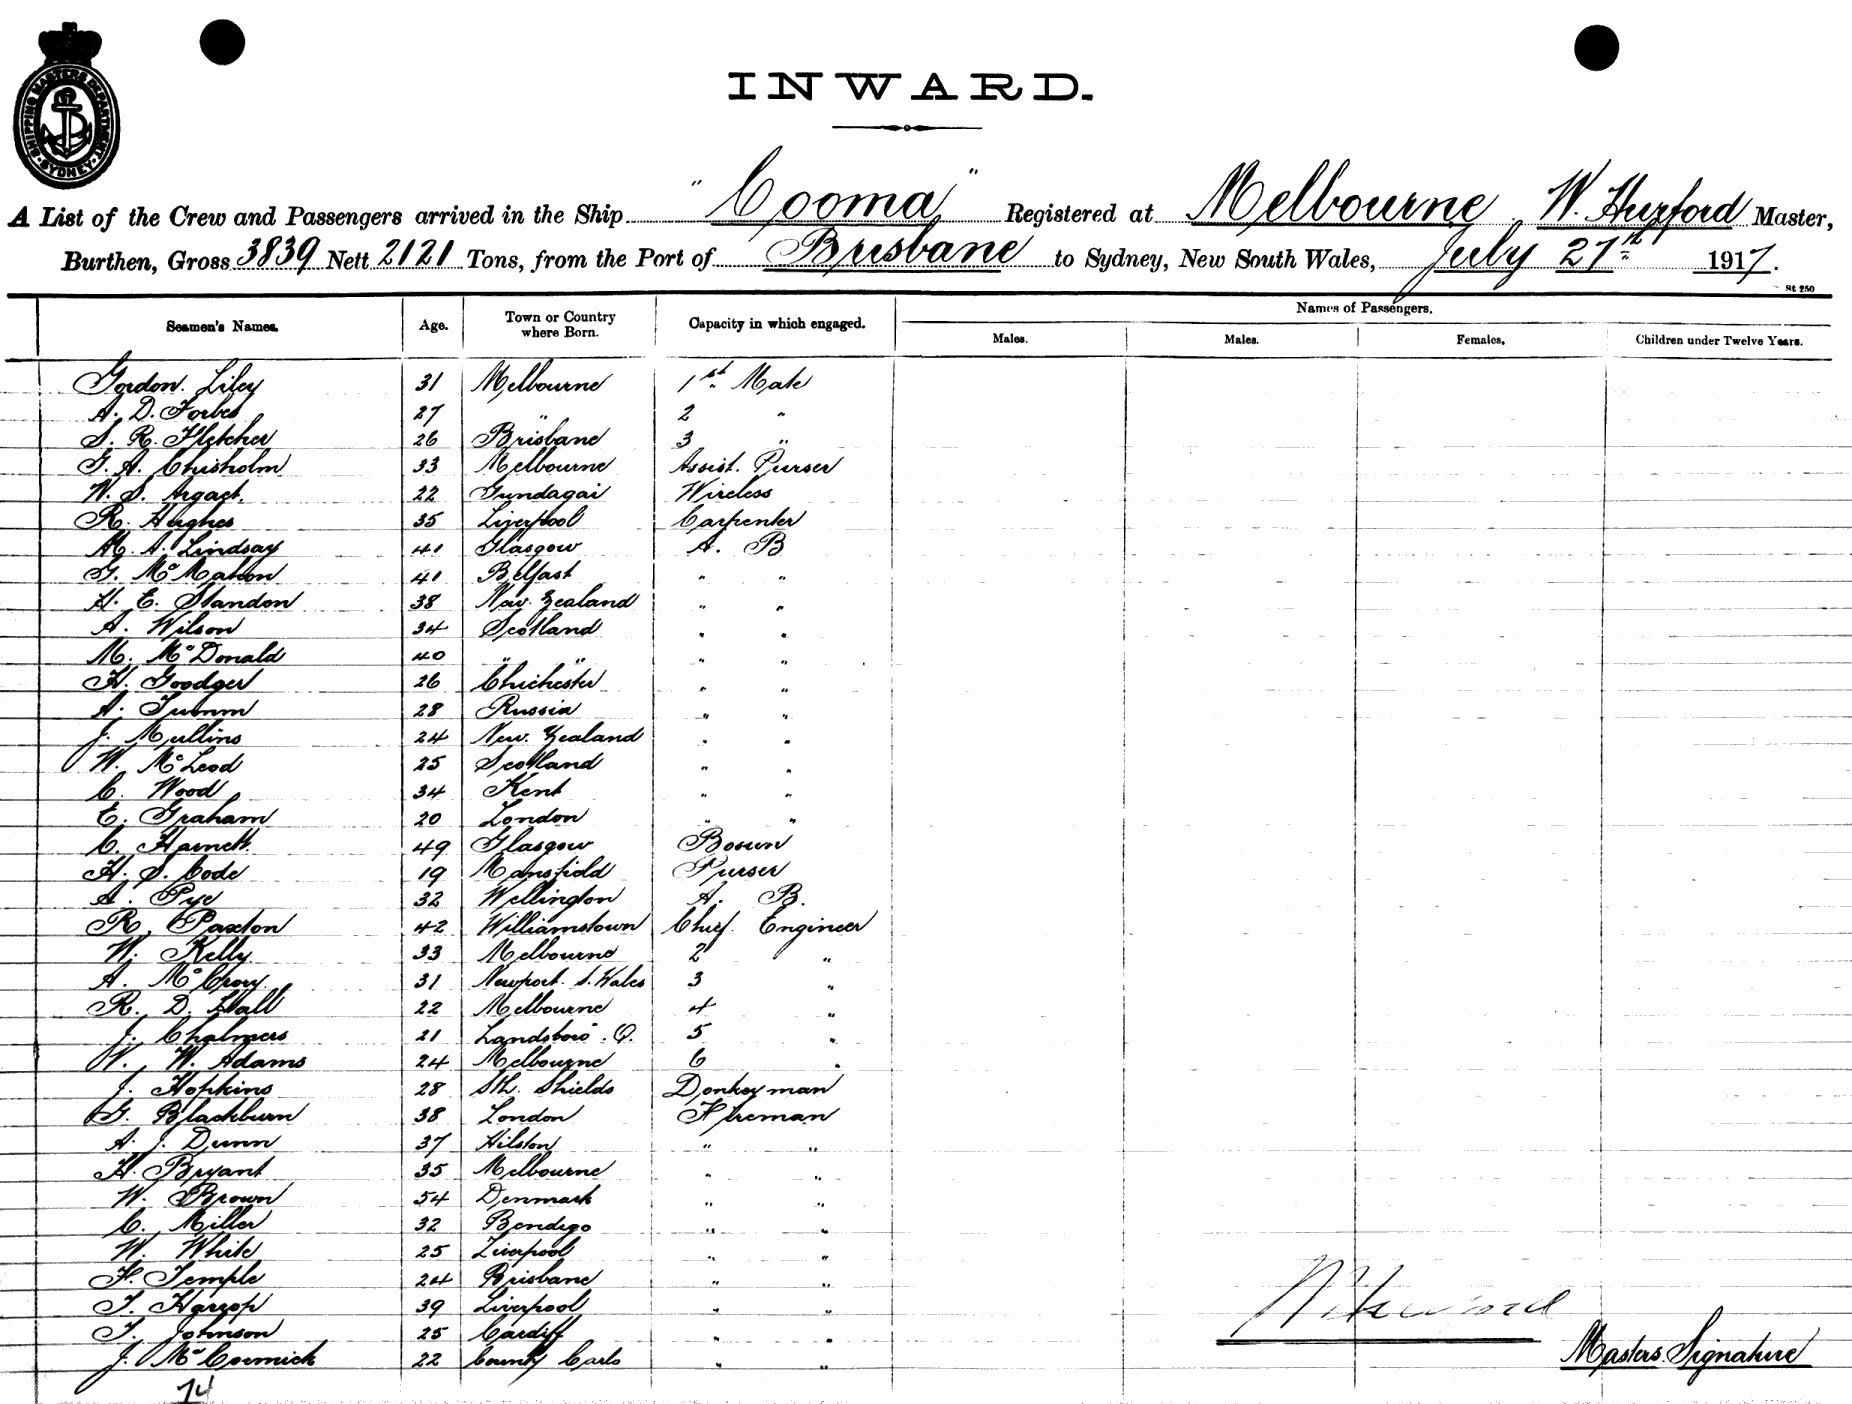 SHIPPING MASTERS DEPARTMENT · SYDNEY ·
INWARD.
A List of the Crew and Passengers arrived in the Ship "Cooma" Registered at Melbourne W. Hurford Master,
Burthen, Gross 3839 Nett 2121 Tons, from the Port of Brisbane to Sydney, New South Wales, July 27th 1917.
St 250
Seamen's Names. Age. Town or Country where Born. Capacity in which engaged. Names of Passengers.
Males. Males. Females. Children under Twelve Years.
Gordon. Liley 31 Melbourne 1st Mate
A. D. Forbes 27 " 2 "
S. R. Fletcher 26 Brisbane 3 "
G. A. Chisholm 33 Melbourne Assist. Purser
W. S. 22 Gundagai Wireless
R. Hughes 35 Liverpool Carpenter
M. A. Lindsay 41 Glasgow A. B
G. McMahon 41 Belfast " "
H. E. Standon 38 New Zealand " "
A. Wilson 34 Scotland " "
M. McDonald 40 " " " "
H. Goodger 26 Chichester " "
A. 28 Russia " "
J. Mullins 24 New. Zealand " "
W. McLeod 25 Scotland " "
C. Wood 34 Kent " "
E. Graham 20 London " "
C. Harnett 49 Glasgow Bosun
H. S. Code 19 Mansfield Purser
A. Pye 32 Wellington A. B.
R. Paxton 42 Williamstown Chief Engineer
W. Kelly 33 Melbourne 2 "
A. McCrory 31 Newport. S. Wales 3 "
R. D. Hall 22 Melbourne 4 "
J. Chalmers 21 Landsboro. Q. 5 "
W. W. Adams 24 Melbourne 6 "
J. Hopkins 28 Sth. Shields Donkeyman
G. Blackburn 38 London Fireman
A. J. Dunn 37 Hilston " "
H. Bryant 35 Melbourne " "
W. Brown 54 Denmark " "
C. Miller 32 Bendigo " "
W. White 25 Liverpool " "
F. Temple 24 Brisbane " "
T. Harrop 39 Liverpool " "
T. Johnson 25 Cardiff " "
J. McCormick 22 County " "
Masters Signature
74